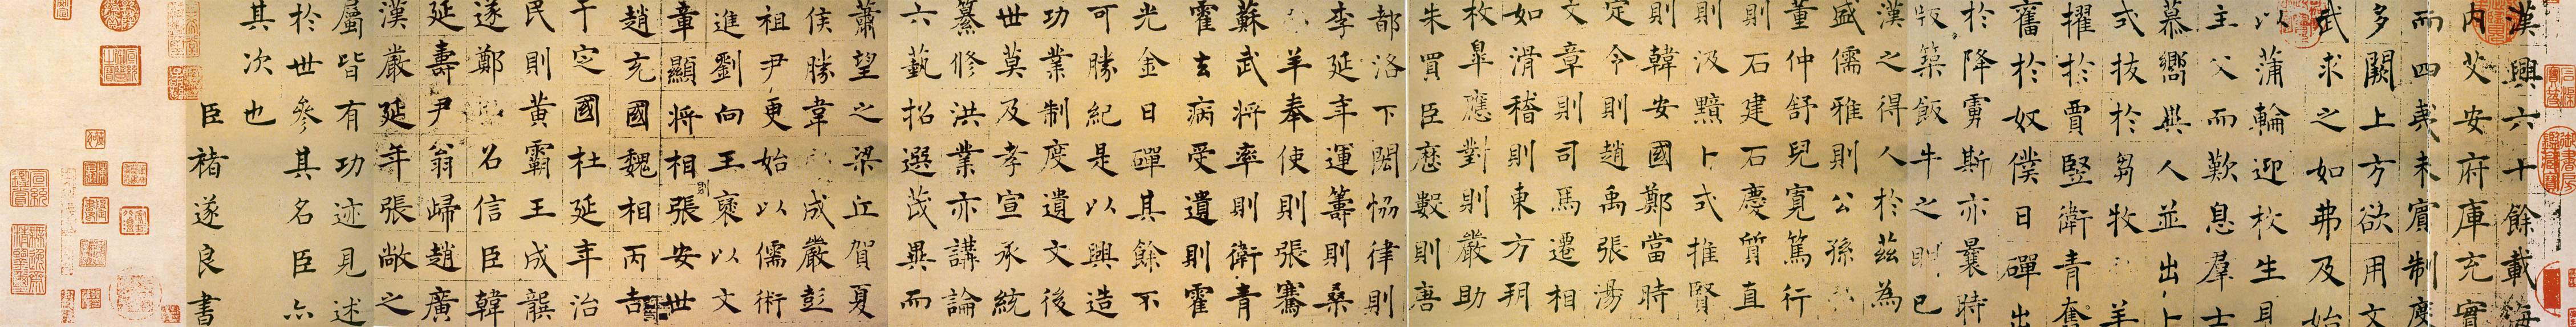 漢興六十餘載海
内艾安府庫充實
而四夷未賓制度
多闕上方欲用文
武求之如弗及始
以蒲輪迎枚生見
主父而歎息羣士
慕嚮異人並出卜
式拔於芻牧羊
擢於賈豎衛青奪
奮於奴僕日磾出
於降虜斯亦曩時
版築飯牛之明已
漢之得人於茲為
盛儒雅則公孫
董仲舒兒寬篤行
則石建石慶質直
則汲黯卜式推賢
則韓安國鄭當時
定令則趙禹張湯
文章則司馬遷相
如滑稽則東方朔
枚皐應對則嚴助
朱買臣歷數則唐
都洛下閎恊律則
李延年運籌則桑
羊奉使則張騫
蘇武将率則衛青
霍去病受遺則霍
光金日磾其餘不
可勝紀是以興造
功業制度遺文後
世莫及孝宣承統
纂修洪業亦講論
六藝招選茂異而
蕭望之梁丘賀夏
侯勝韋成嚴彭
祖尹更始以儒術
進劉向王襃以文
章顯将相則張安世
趙充國魏相丙吉
于定國杜延年治
民則黄霸王成龔
遂鄭召信臣韓
延壽尹翁歸趙廣
漢嚴延年張敞之
屬皆有功迹見述
於世參其名臣亦
其次也
臣褚遂良書